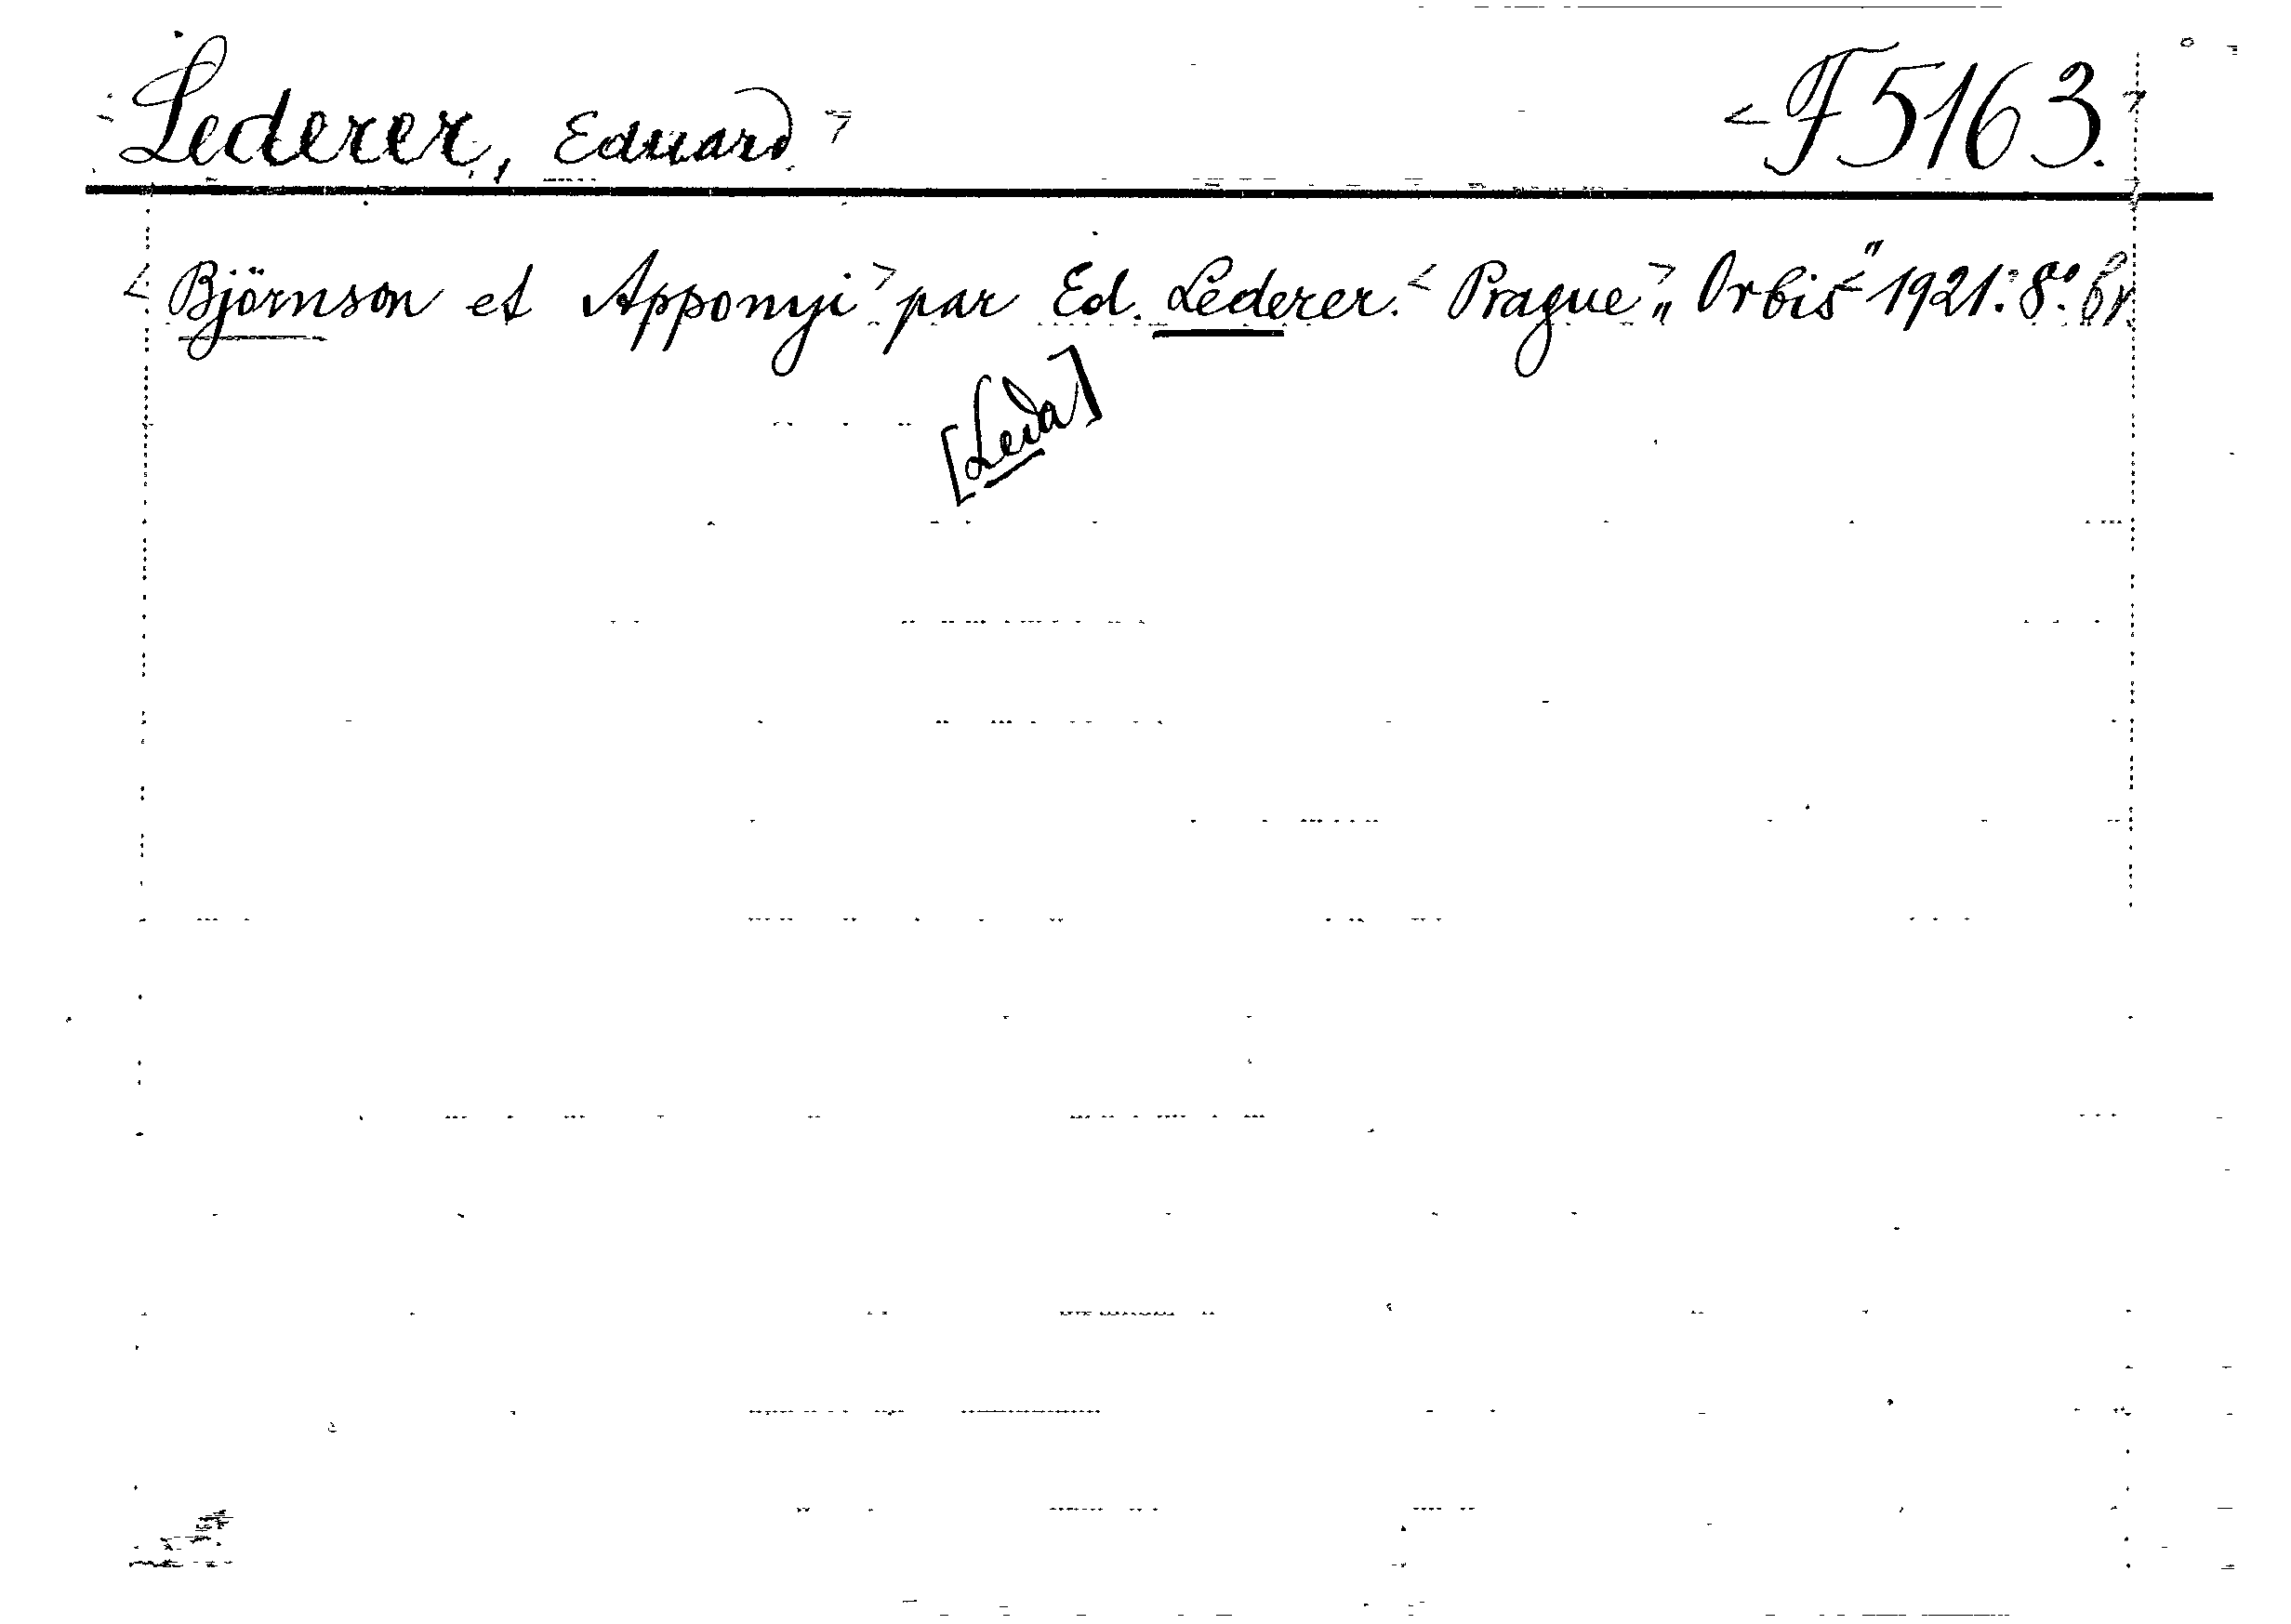 Lederer, Eduard F 5163.
Björnson et Apponyi par Ed. Lederer. Prague „Orbis" 1921. 8° br.
[Leda]